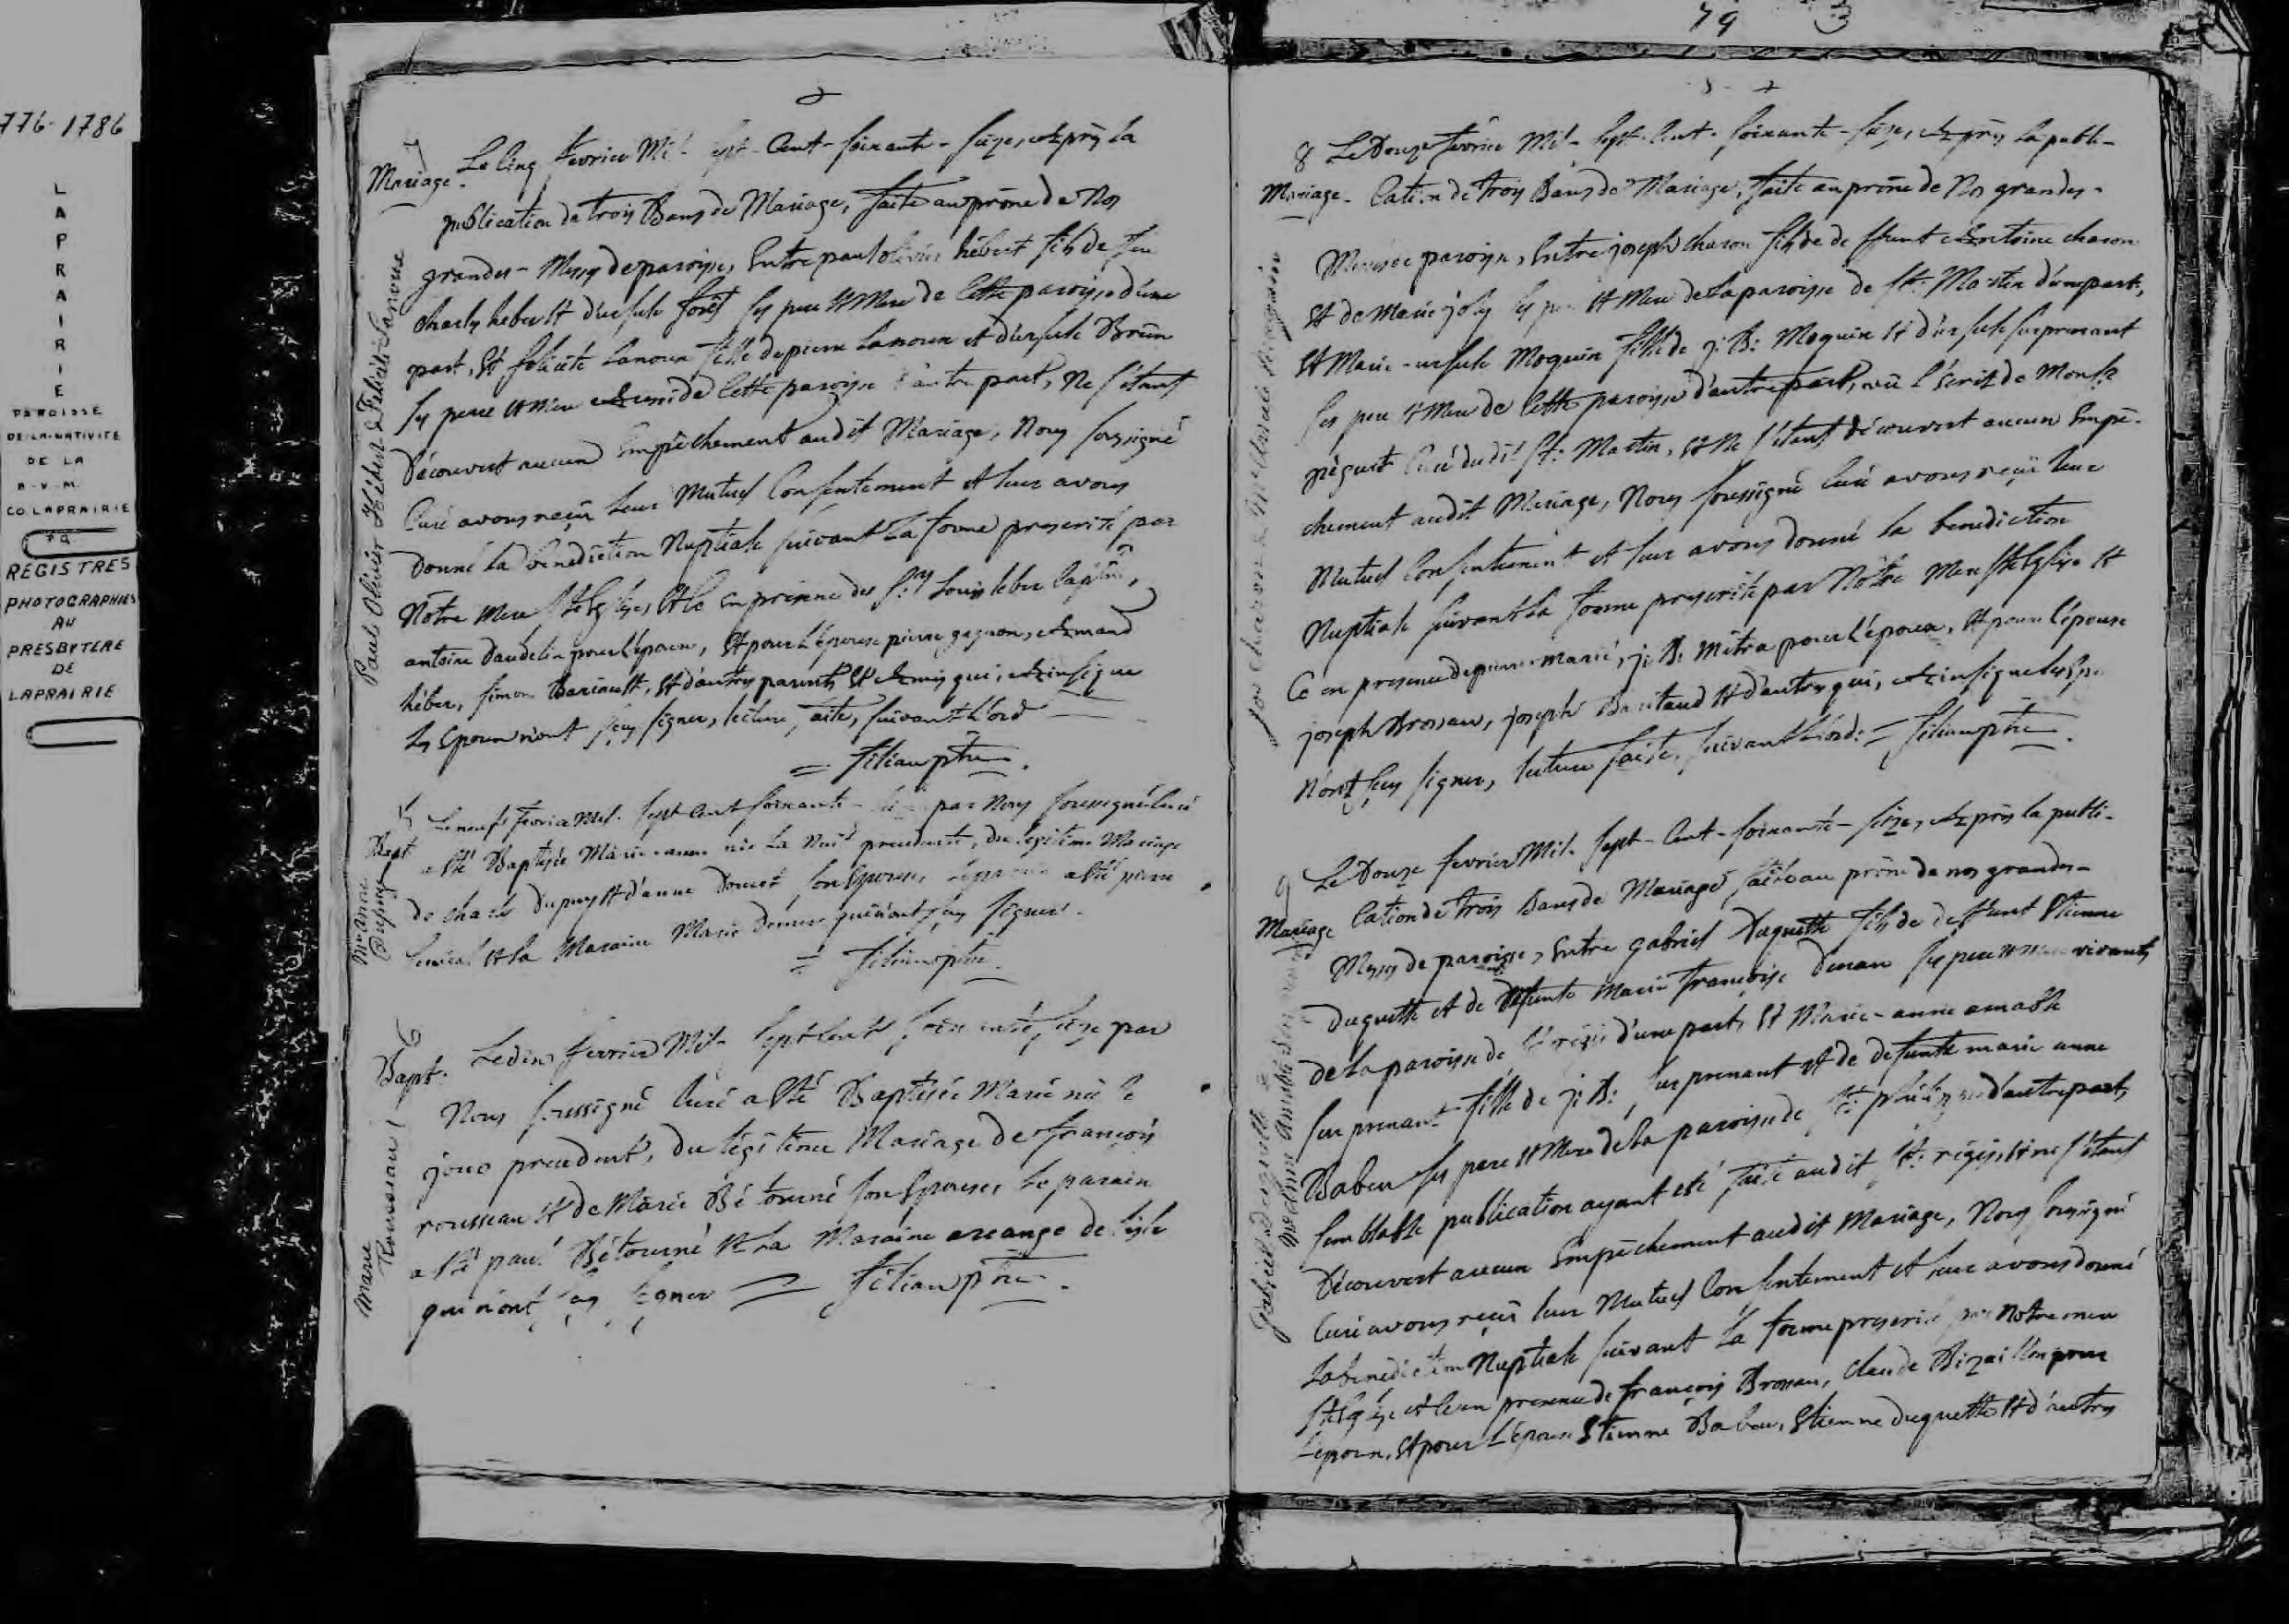 776-1786
LAPRAIRIE
PAROISSE
DE-LA-NATIVITE
DE LA
B-V-M.
CO. LAPRAIRIE
REGISTRES
PHOTOGRAPHIES
AU
PRESBYTERE
DE
LAPRAIRIE
7
Mariage.
Paul Olivier Hébert & Félicité Lanoue
Le Cinq fevrier Mil-Sept-Cent-soixante-seize, Après la
publication de trois Bans de Mariage, faite au prône de Nos
grandes-Messes de paroisse, Entre paul olivier hébert fils de feu
charles heber Et d'ursule forêt ses pere Et Mere de Cette paroisse d'une
part, Et felicité Lanoue fille de pierre Lanoue et d'ursule Brun
ses pere et Mere Aussi de Cette paroisse d'autre part, Ne s'étant
Découvert aucun Empêchement audit Mariage, Nous soussigné
Curé avons reçû leur Mutuel Consentement et leur avons
Donné la benediction Nuptiale suivant La forme prescrite par
Nôtre Mere Ste Eglise, Et Ce En presence des Srs Louis heber Capitne,
antoine Daudelin pour l'époux, Et pour L'épouse pierre gagnon, Amand
héber, simon Bariault, Et d'autres parents Et Amis qui, Ainsi que
Les Epoux n'ont sçu signer, lecture faite, suivant L'ord
= filiau ptre.
5
Bapt
Mie Anne
Dupuy
Le neuf fevrier Mil-sept Cent soixante-seize par Nous soussigné Curé
a Eté Baptisée Marie-anne née La Nuit precedente, du legitime Mariage
de charle Dupuy Et d'anne Doucet son Epouse, a été pierre
Et la Maraine Marie qui n'ont sçu signer.
= filiau ptre.
6
Bapt.
Marie
Rousseau
Le dix fevrier Mil-sept Cent soixante seize par
Nous soussigné Curé a Eté Baptisée Marie née le
jour precedent, du légitime Mariage de françois
rousseau Et de Marie Bétourné son Epouse, Le parain
a Eté paul Bétourné Et La Maraine arcange de
qui n'ont sçu signer = filiau ptre.
79
8
Mariage.
Jos Charon & Mie Ursule Moquin
Le Douze fevrier Mil-Sept-Cent-soixante-seize, Après La publi-
Cation de trois Bans de Mariage, faite au prône de Nos grandes-
Messes de paroisse, Entre joseph charon fils de deffunt Antoine charon
Et de Marie joly ses pere Et Mere de La paroisse de St: Martin d'une part,
Et Marie-ursule Moquin fille de j: B: Moquin Et d'ursule surprenant
ses pere Et Mere de Cette paroisse d'autre part, vû l'écrit de Monsr
Curé dudit St: Martin, Et Ne s'étant découvert aucun Empê-
chement audit Mariage, Nous soussigné Curé avons reçû leur
Mutuel Consentement et leur avons donné la benediction
Nuptiale suivant la forme prescrite par Nôtre Mere Ste Eglise Et
Ce en presence de pierre marié, j: B: Mitra pour L'époux, Et pour l'épouse
joseph Brosseau, joseph Et d'autres qui, Ainsi que les Epx
N'ont sçu signer, lecture faite, suivant L'ord: = filiau ptre.
9
Mariage
Gabriel Duquette &
Mie Anne Amable
Le Douze fevrier Mil-sept-Cent-soixante-seize, Après la publi-
Cation de trois Bans de Mariage, faite au prône de nos grandes-
Messes de paroisse, Entre gabriel Duquette fils de deffunt Etienne
Duquette et de Defunte Marie françoise Denau ses pere et mere vivants
de La paroisse de St régis d'une part, Et Marie-anne amable
surprenant fille de j: B: surprenant Et de defunte marie anne
Babeu ses pere Et Mere de La paroisse de St: d'autre part,
semblable publication ayant été faite audit St: régis, Et ne s'étant
Découvert aucun Empêchement audit Mariage, Nous soussigné
Curé avons reçû leur Mutuel Consentement et leur avons donné
La benediction Nuptiale suivant La forme prescrite par Notre mere
Ste Eglise et Ce en presence de françois Brosseau, Claude Bizaillon pour
L'époux, Et pour L'épouse Etienne Babeu, Etienne duquette Et d'autres